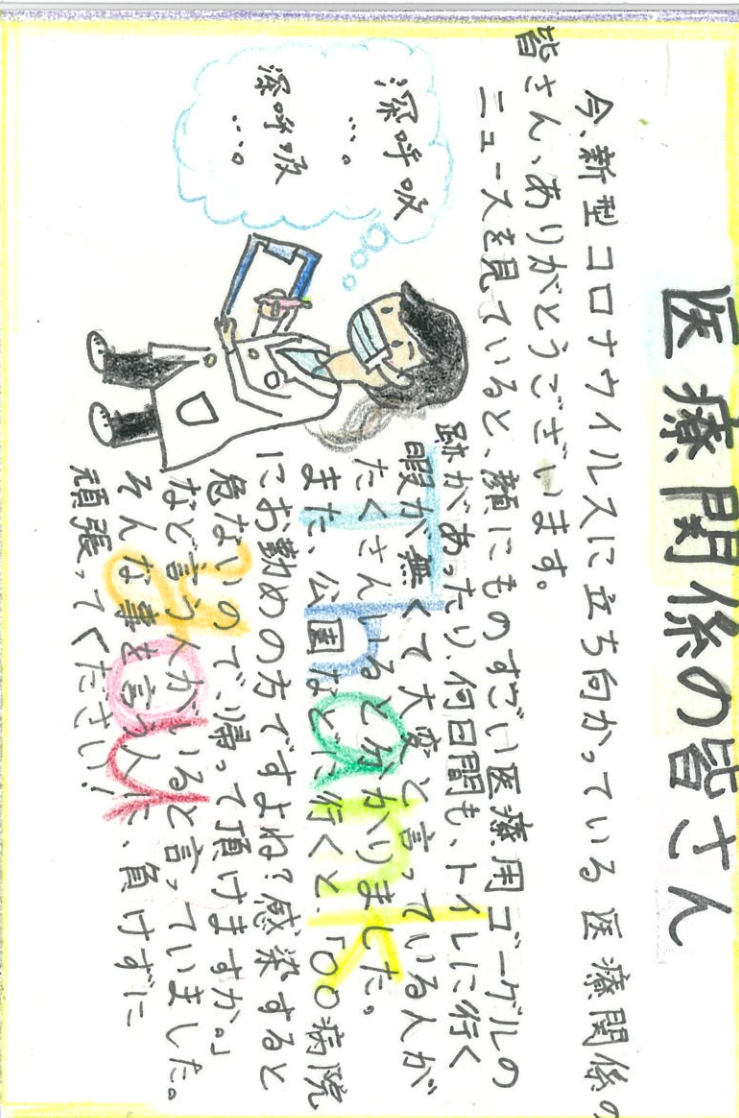 医療関係の皆さん
今、新型コロナウイルスに立ち向かっている医療関係の
皆さん、ありがとうございます。
ニュースを見ていると、顔にものすごい医療用ゴーグルの
跡があったり、何日間も、トイレに行く
暇が無くて大変と言っている人が
たくさんいると分かりました。
また、公園などに行くと、「〇〇病院
にお勤めの方ですよね?感染すると
危ないので、帰って頂けますか。」
など言う人がいると言っていました。
そんな事を言う人に、負けずに
頑張ってください!
深呼吸
…。
深呼吸
…。
Thank
you